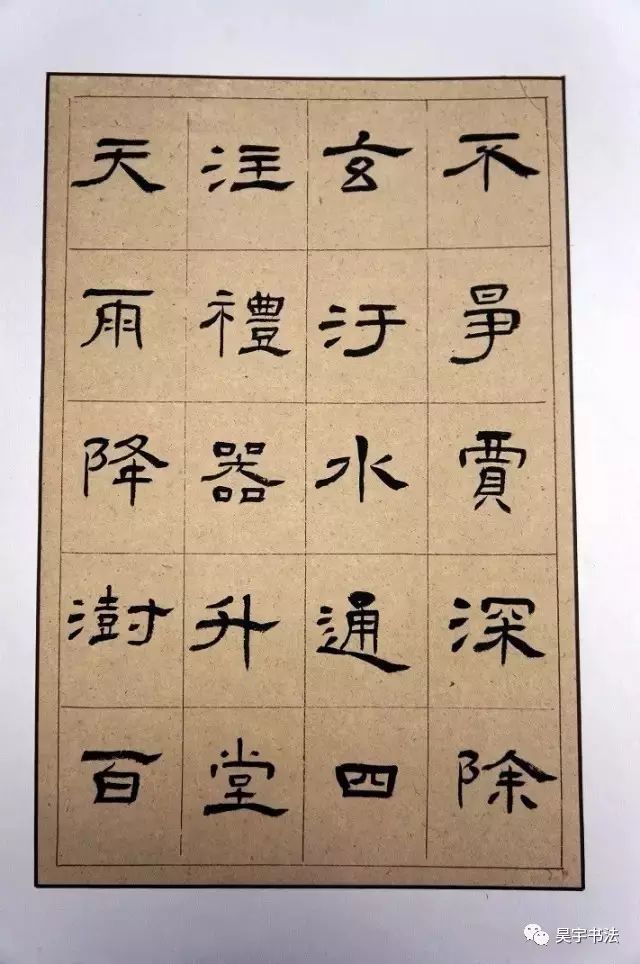 不爭賈深除
玄汙水通四
注禮器升堂
天雨降澍百
昊宇书法